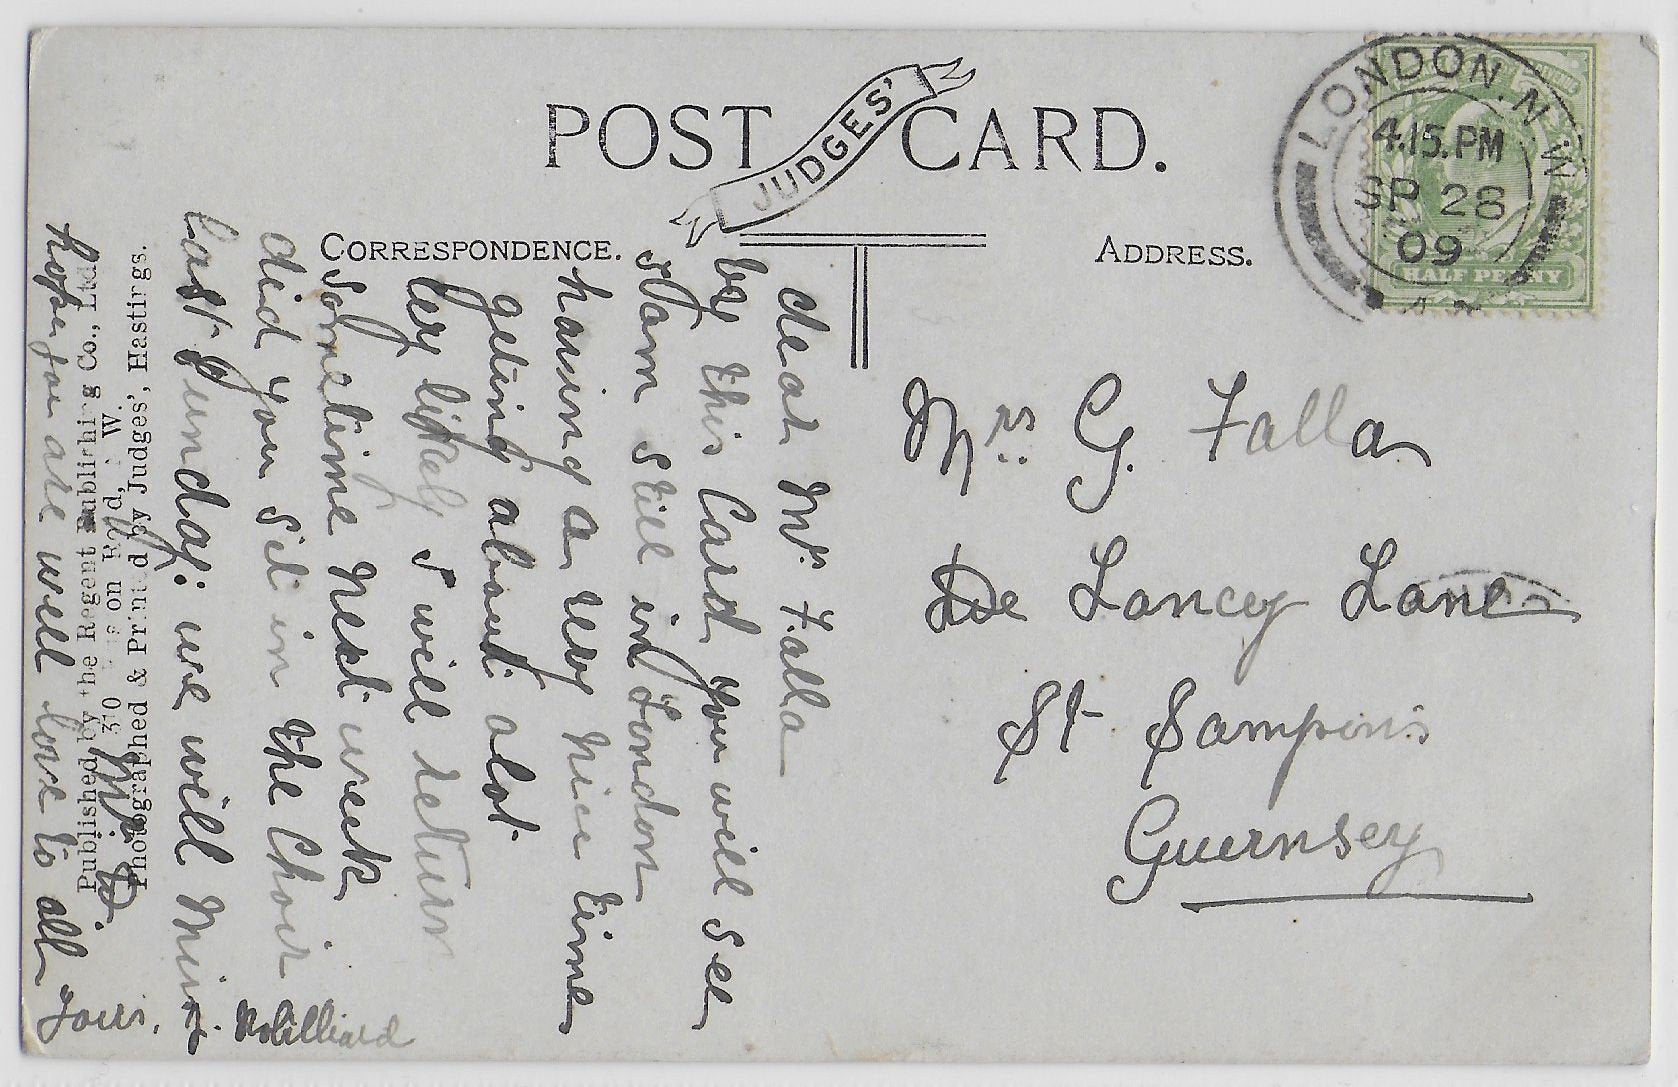 POST CARD.
JUDGES'
CORRESPONDENCE.
ADDRESS.
LONDON. N.W.
4.15.PM
SP 28
09
HALF PENNY
Mrs G. Falla
De Lancey Lane
St Sampsons
Guernsey
dear Mrs Falla
by this Card you will see
I am still in London
having a very nice time
geting about alot
very likely I will return
sometime next week
did you sit in the Choir
last Sunday: we will
hope you are well love to all
yours.
Published by the Regent Publishing Co., Ltd
310 on Rd, N.W.
Photographed & Printed by Judges', Hastings.